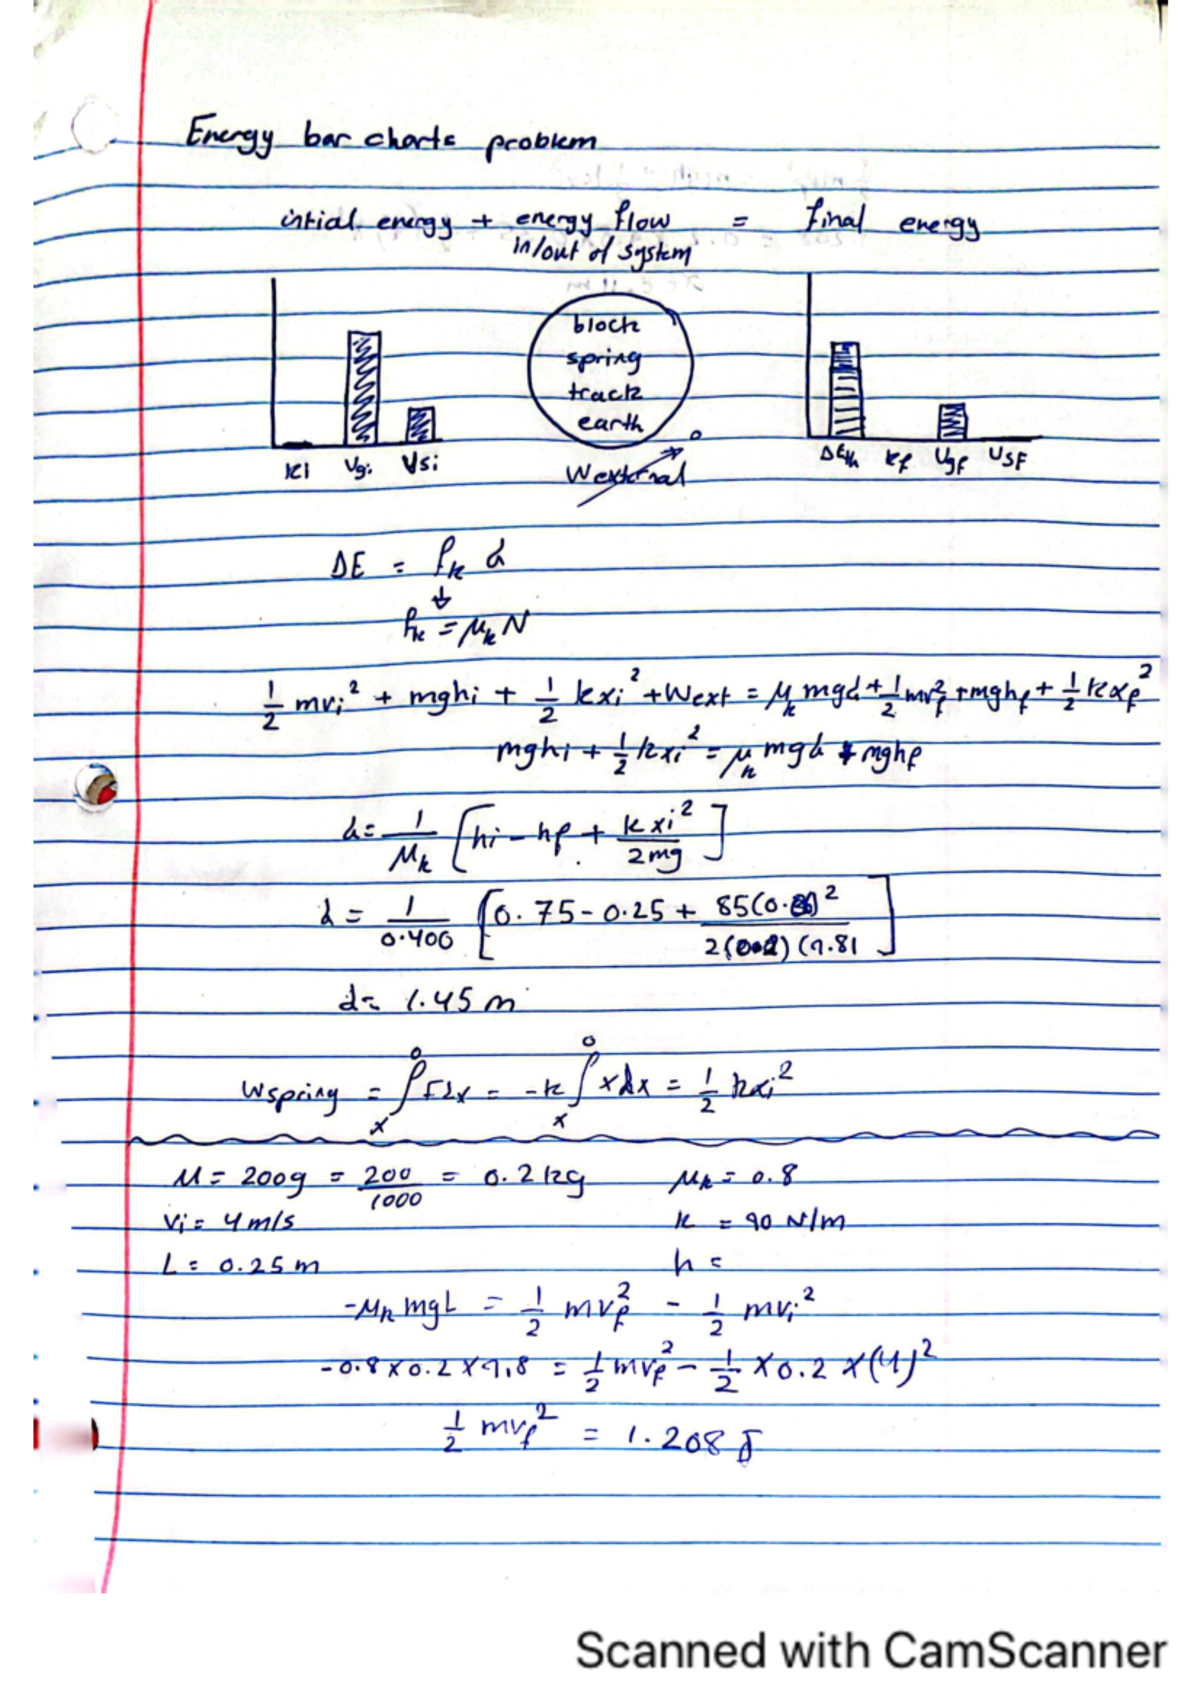 Energy bar charts problem
intial energy + energy flow in/out of system = final energy
block
spring
track
earth
Ki Ugi Usi
Wexternal 0
ΔEth Kf Ugf Usf
ΔE = fk d
↓
fk = μk N
1/2 mvi² + mghi + 1/2 kxi² + Wext = μk mgd + 1/2 mvf² + mghf + 1/2 kxf²
mghi + 1/2 kxi² = μk mgd + mghf
d = 1/μk [hi - hf + kxi²/2mg]
d = 1/0.400 [0.75 - 0.25 + 85(0. )²/2( )(9.81]
d = 1.45 m
Wspring = ∫ₓ⁰ Fdx = -k ∫ₓ⁰ xdx = 1/2 kxi²
M = 200g = 200/1000 = 0.2 kg μk = 0.8
Vi = 4 m/s k = 90 N/m
L = 0.25 m h =
-μk mgL = 1/2 mvf² - 1/2 mvi²
-0.8 x 0.2 x 9.8 = 1/2 mvf² - 1/2 x 0.2 x (4)²
1/2 mvf² = 1.208 J
Scanned with CamScanner